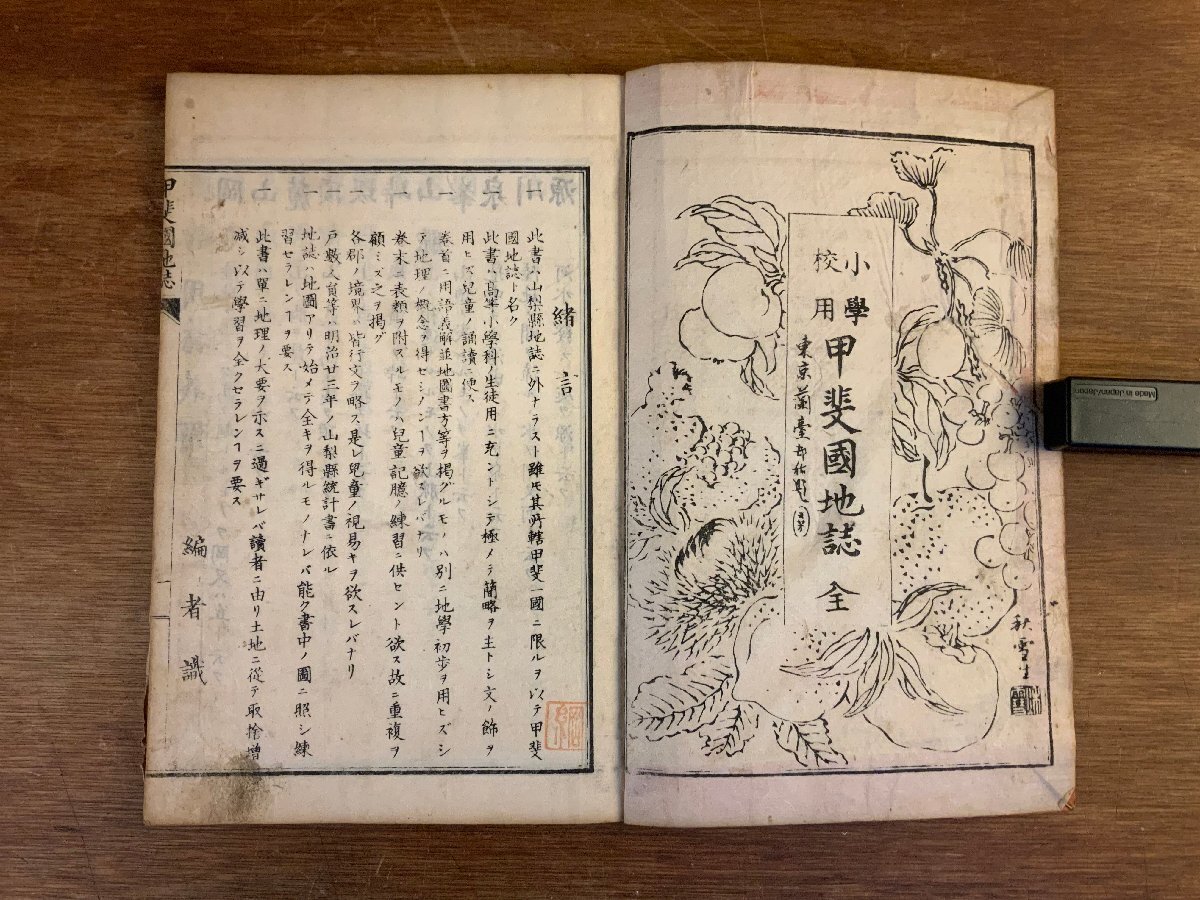 小學
校用
甲斐國地誌 全
秋雪生
緒言
一此書ハ山梨縣地誌ニ外ナラスト雖𪜈其所轄甲斐一國ニ限ルヲ以テ甲斐
國地誌ト名ク
一此書ハ高等小學科ノ生徒用ニ充ントシテ極メテ簡略ヲ主トシ文ノ飾ヲ
用ヒズ兒童ノ誦讀ニ便ス
一卷首ニ用語義解並地圖書方等ヲ掲グルモノハ別ニ地學初歩ヲ用ヒズシ
テ地理ノ概念ヲ得セシメンヿヲ欲スレバナリ
一卷末ニ表類ヲ附スルモノハ兒童記臆ノ練習ニ供セント欲ス故ニ重複ヲ
顧ミズ之ヲ掲グ
一各郡ノ境界ハ皆行文ヲ略ス是レ兒童ノ視易キヲ欲スレバナリ
一戸數人員等ハ明治廿三年ノ山梨縣統計書ニ依ル
一地誌ハ地圖アリテ始メテ全キヲ得ルモノナレバ能ク書中ノ圖ニ照シ練
習セラレンヿヲ要ス
一此書ハ單ニ地理ノ大要ヲ示スニ過ギサレバ讀者ニ由リ土地ニ從テ取捨増
減シ以テ學習ヲ全クセラレンヿヲ要ス
編者識
甲斐國地誌
Made in Japan/Japon